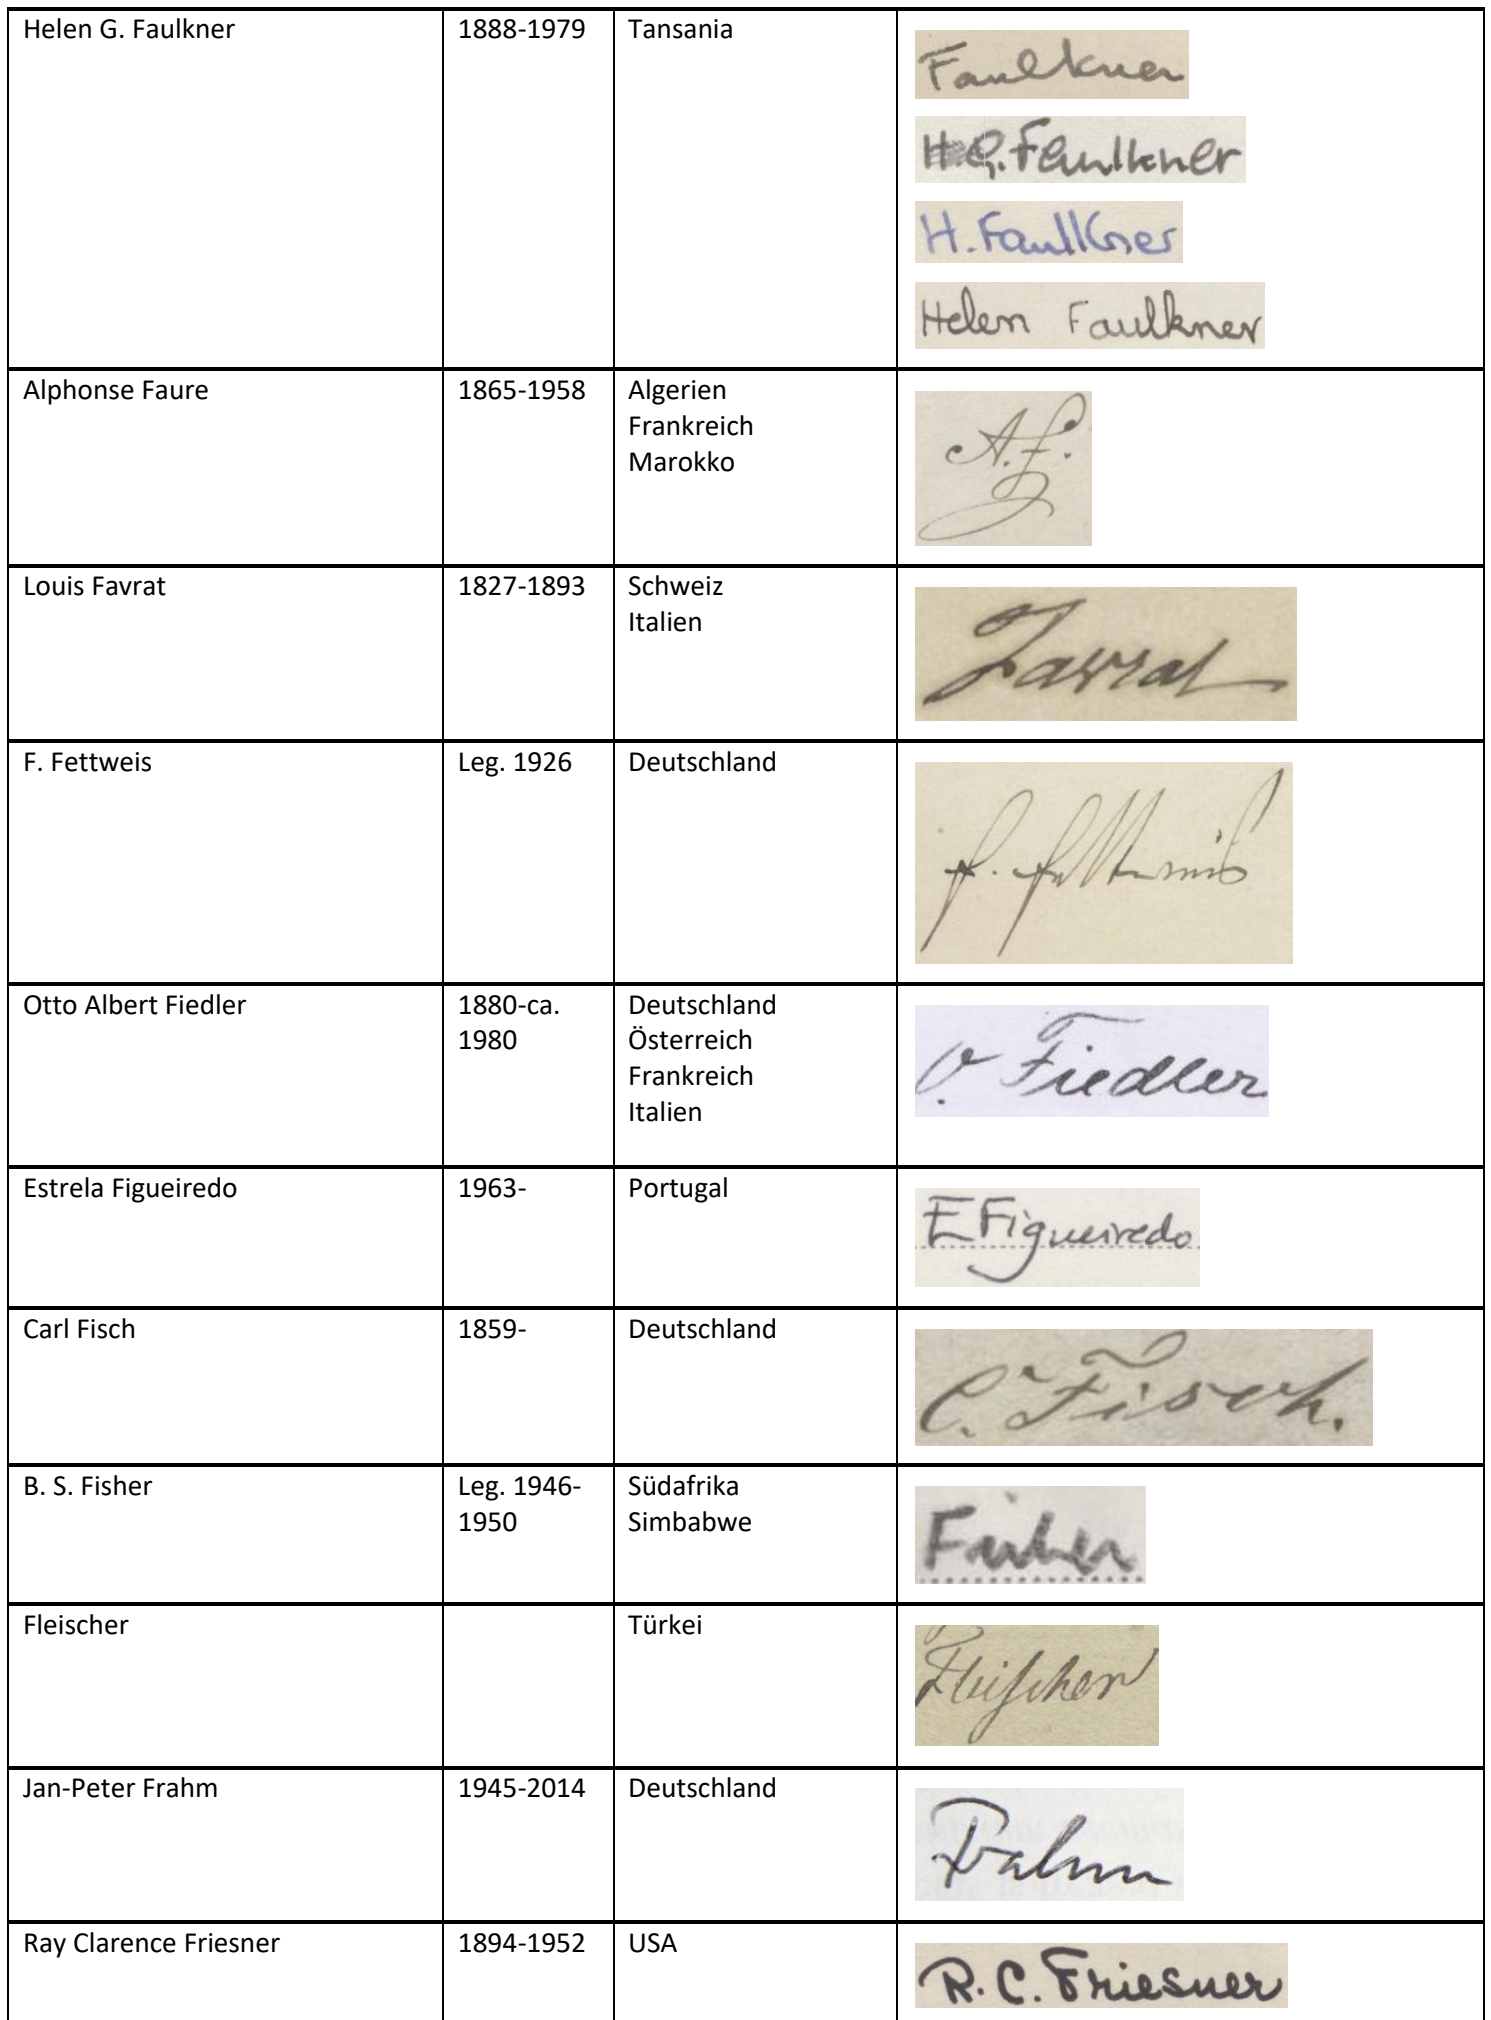 Helen G. Faulkner 1888-1979 Tansania Faulkner
H.G. Faulkner
H. Faulkner
Helen Faulkner
Alphonse Faure 1865-1958 Algerien A.F.
Frankreich
Marokko
Louis Favrat 1827-1893 Schweiz Favrat
Italien
F. Fettweis Leg. 1926 Deutschland F. Fettweis
Otto Albert Fiedler 1880-ca. Deutschland O. Fiedler
1980 Österreich
Frankreich
Italien
Estrela Figueiredo 1963- Portugal E Figueiredo
Carl Fisch 1859- Deutschland C. Fisch.
B. S. Fisher Leg. 1946- Südafrika Fisher
1950 Simbabwe
Fleischer Türkei Fleischer
Jan-Peter Frahm 1945-2014 Deutschland Frahm
Ray Clarence Friesner 1894-1952 USA R. C. Friesner